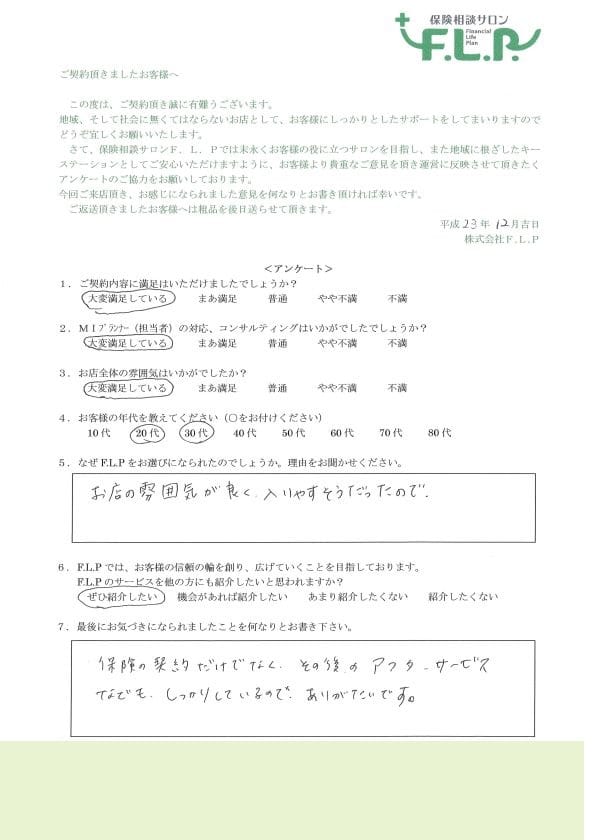 保険相談サロン
Financial
Life
Plan
F.L.P.
ご契約頂きましたお客様へ
この度は、ご契約頂き誠に有難うございます。
地域、そして社会に無くてはならないお店として、お客様にしっかりとしたサポートをしてまいりますので
どうぞ宜しくお願いいたします。
さて、保険相談サロンF．L．Pでは末永くお客様の役に立つサロンを目指し、また地域に根ざしたキー
ステーションとしてご安心いただけますように、お客様より貴重なご意見を頂き運営に反映させて頂きたく
アンケートのご協力をお願いしております。
今回ご来店頂き、お感じになられました意見を何なりとお書き頂ければ幸いです。
ご返送頂きましたお客様へは粗品を後日送らせて頂きます。
平成 23 年 12 月吉日
株式会社F.L.P
＜アンケート＞
１．ご契約内容に満足はいただけましたでしょうか？
大変満足している まあ満足 普通 やや不満 不満
２．MIﾌﾟﾗﾝﾅｰ（担当者）の対応、コンサルティングはいかがでしたでしょうか？
大変満足している まあ満足 普通 やや不満 不満
３．お店全体の雰囲気はいかがでしたか？
大変満足している まあ満足 普通 やや不満 不満
４．お客様の年代を教えてください（○をお付けください）
10代 20代 30代 40代 50代 60代 70代 80代
５．なぜF.L.Pをお選びになられたのでしょうか。理由をお聞かせください。
お店の雰囲気が良く、入りやすそうだったので。
６．F.L.Pでは、お客様の信頼の輪を創り、広げていくことを目指しております。
F.L.Pのサービスを他の方にも紹介したいと思われますか？
ぜひ紹介したい 機会があれば紹介したい あまり紹介したくない 紹介したくない
７．最後にお気づきになられましたことを何なりとお書き下さい。
保険の契約だけでなく、その後のアフターサービス
なども、しっかりしているので、ありがたいです。